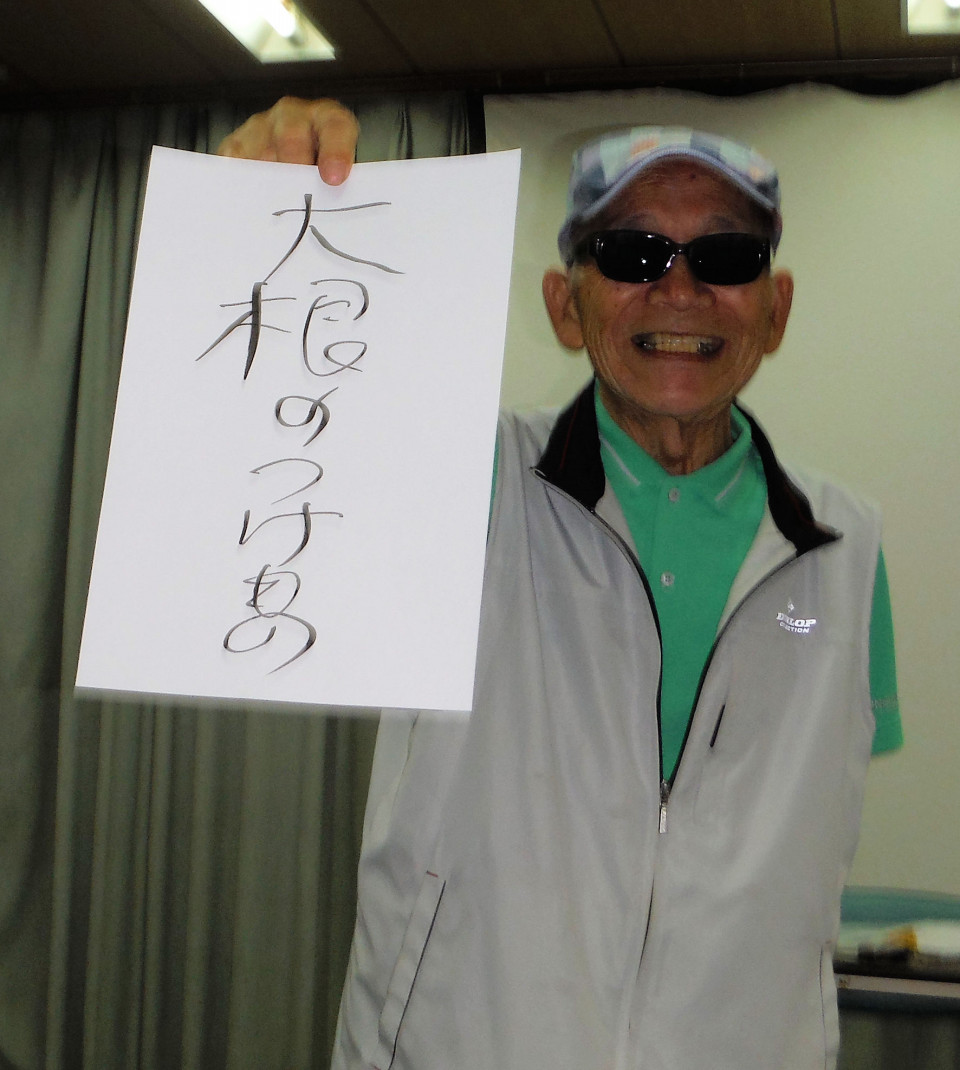 大根のつけもの
DUNLOP